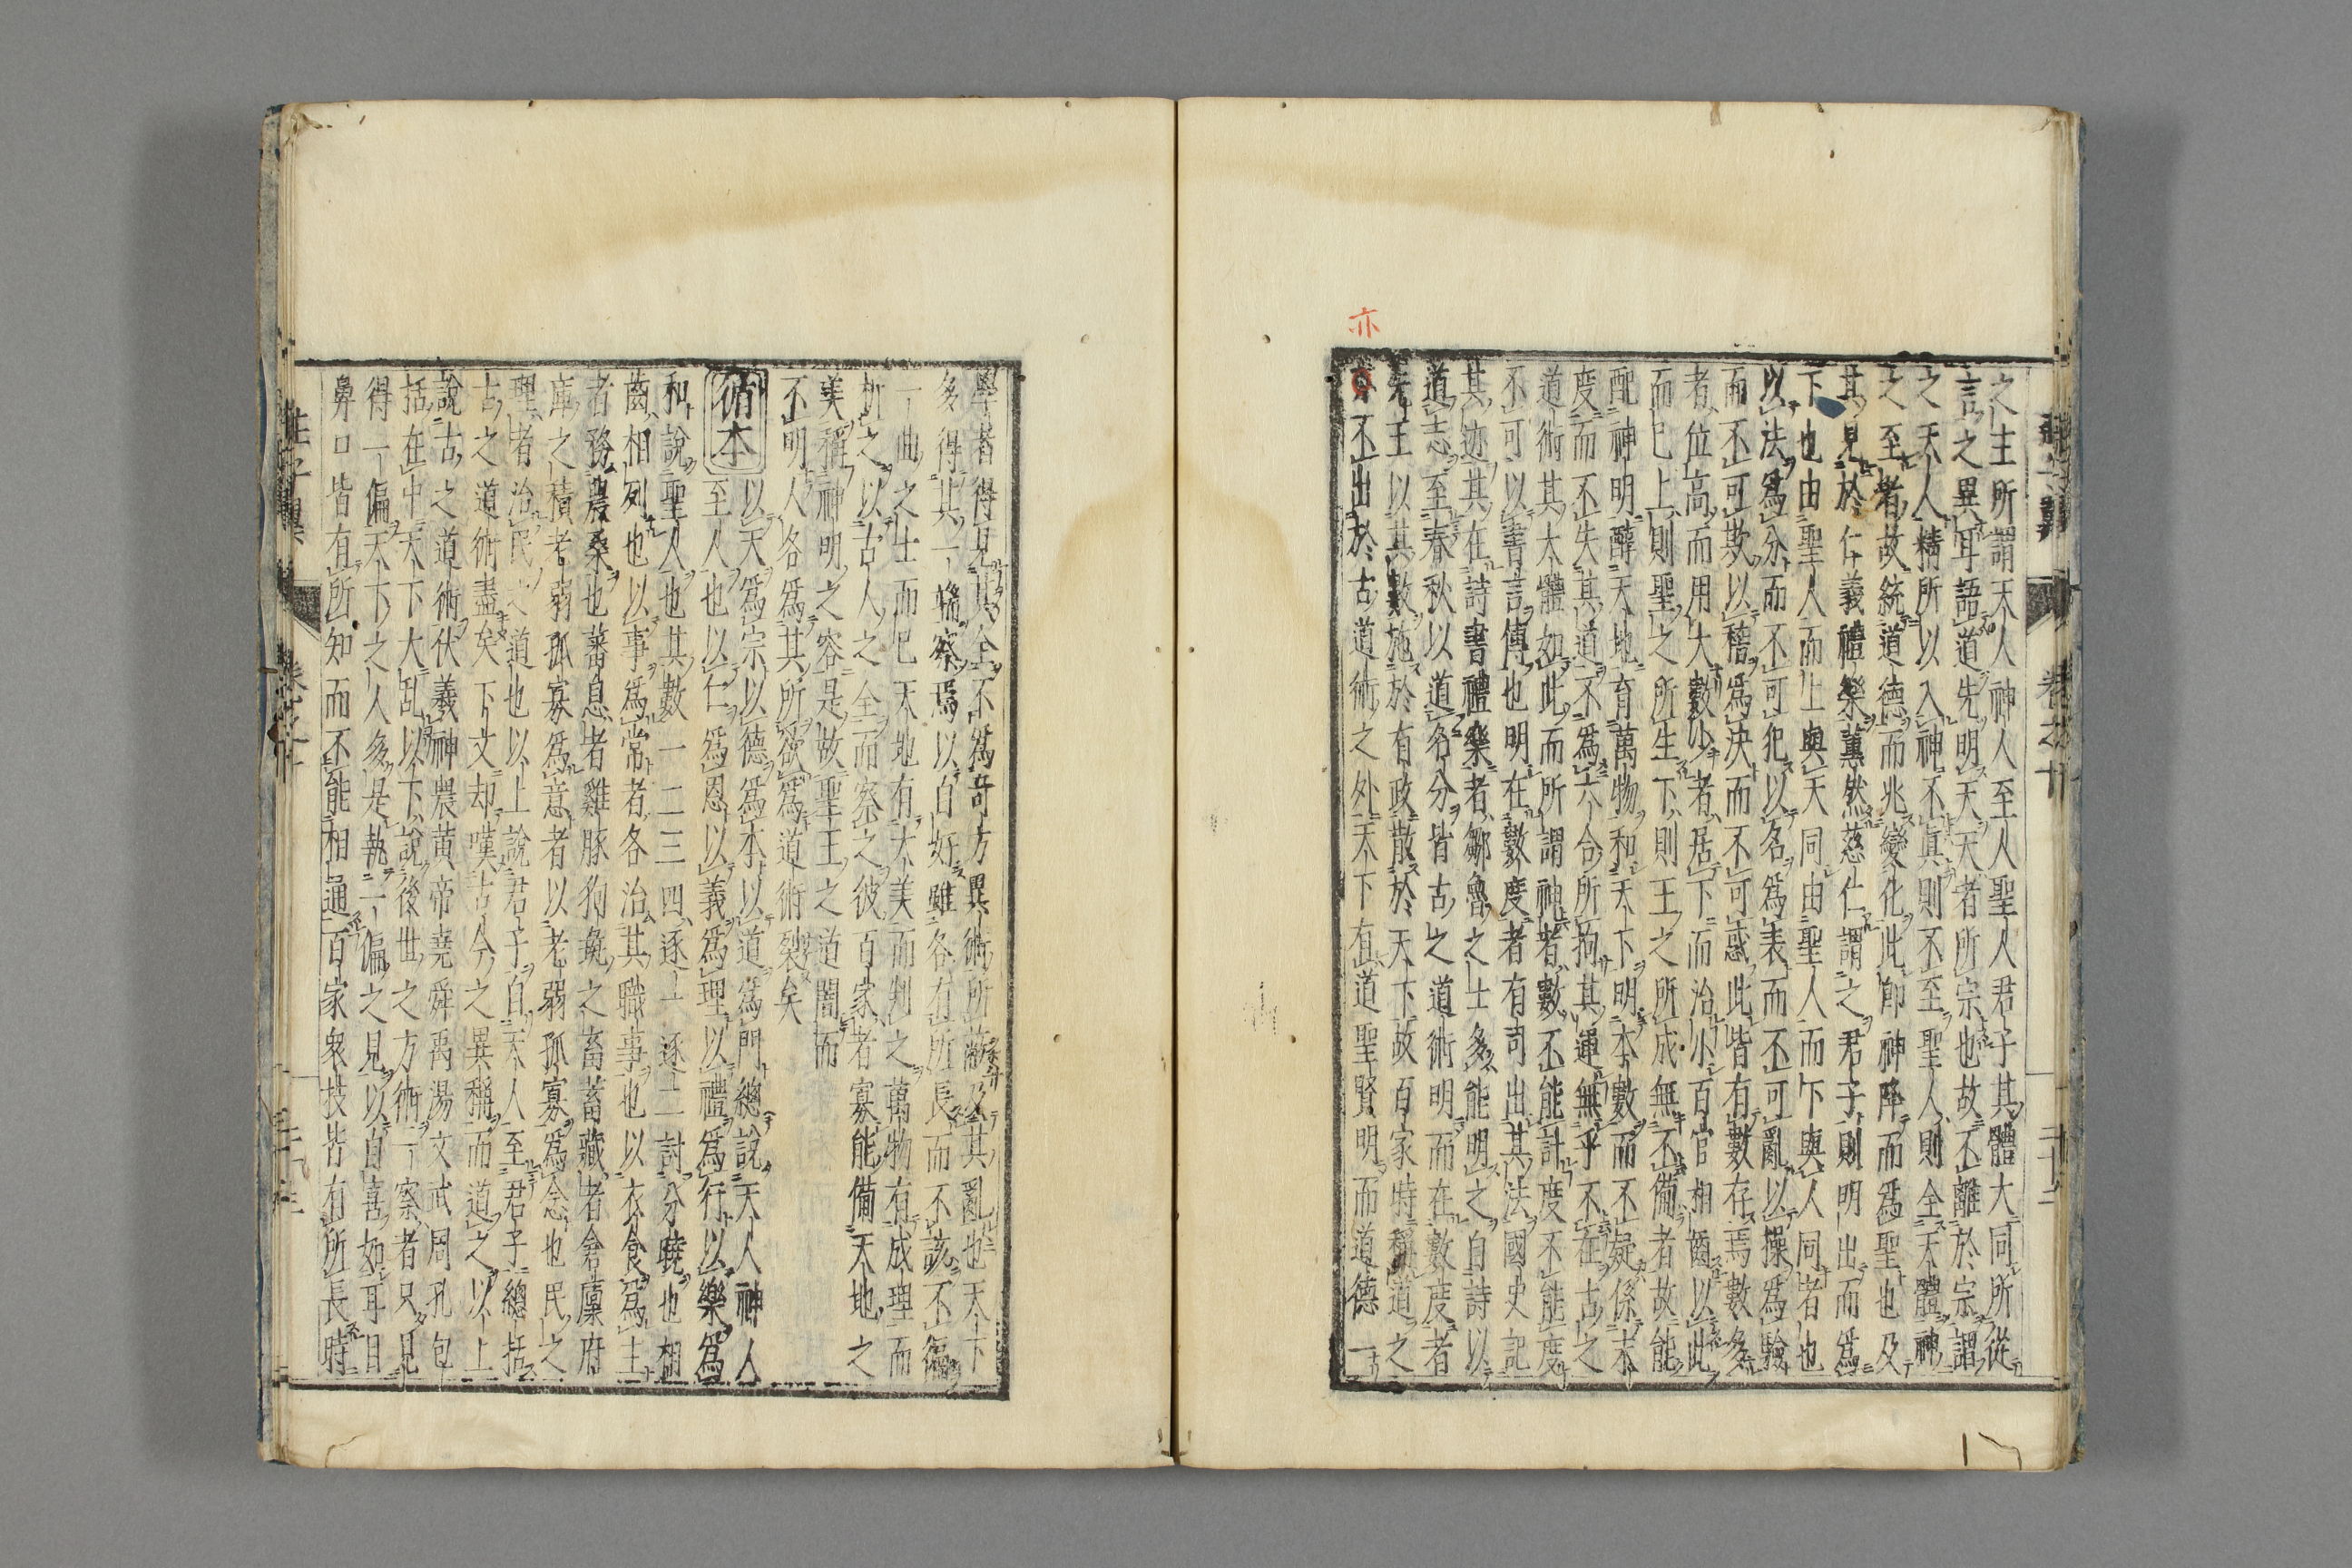 之主所謂天人神人至人聖人君子其體大同所從
言之異耳語道先明天天者所宗也故不離於宗謂
之天人精所以入神不眞則不至聖人則全天體神
之至者故統道德而兆變化此卽神降而爲聖也及
其見於仁義禮樂薰然慈仁謂之君子則明出而爲
下也由聖人而上與天同由聖人而下與人同者也
以法爲分而不可犯以名爲表而不可亂以操爲驗
而不可欺以稽爲決而不可惑此皆有數存焉數多
者位高而用大數少者居下而治小百官相齒以此
而已上則聖之所生下則王之所成無不備者故能
配神明醇天地育萬物和天下明本數而不疑係末
度而不失其道不爲六合所拘其運無乎不在古之
道術其大體如此而所謂神者數不能計度不能度
不可以書言傳也明在數度者有司出其法國史記
其迹其在詩書禮樂者鄒魯之士多能明之自詩以
道志至春秋以道名分皆古之道術明而在數度者
先王以其數施於有政散於天下故百家時稱道之
亦
不出於古道術之外天下有道聖賢明而道德一
莊子翼 卷之十
學者得見其全不爲奇方異術所蔽及其亂也天下
多得其一端察焉以自好雖各有所長而不該不徧
一曲之士而已天地有大美而判之萬物有成理而
析之以古人之全而察之彼百家者寡能備天地之
美稱神明之容是故聖王之道闇而
不明人各爲其所欲爲道術裂矣
循本 以天爲宗以德爲本以道爲門總說天人神人
至人也以仁爲恩以義爲理以禮爲行以樂爲
和說聖人也其數一二三四逐一逐二討分曉也相
齒相列也以事爲常者各治其職事也以衣食爲主
者務農桑也蕃息者雞豚狗彘之畜畜藏者倉廩府
庫之積老弱孤寡爲意者以老弱孤寡爲念也民之
理者治民之道也以上說君子自天人至君子總括
古之道術盡矣下文却嘆古今之異稱而道之以上
說古之道術伏羲神農黃帝堯舜禹湯文武周孔包
括在中天下大乱以下說後世之方術一察者只見
得一偏天下之人多是執一偏之見以自喜如耳目
鼻口皆有所知而不能相通百家衆技皆有所長時
莊子翼